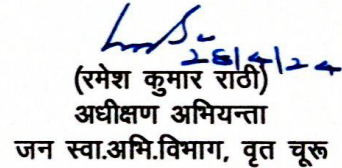 28/4/24
(रमेश कुमार राठी)
अधीक्षण अभियन्ता
जन स्वा.अभि.विभाग, वृत चूरू